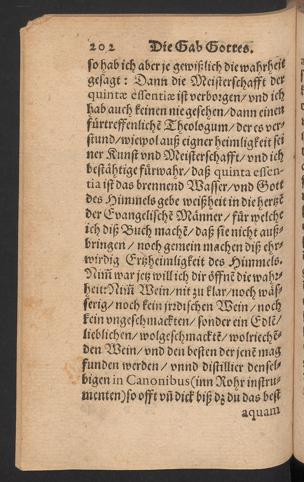 202 Die Gab Gottes.
so hab ich aber je gewißlich die wahrheit
gesagt: Dann die Meisterschafft der
quintæ essentiæ ist verborgen/ vnd ich
hab auch keinen nie gesehen/ dann einen
fürtreffenlichẽ Theologum/ der es ver-
stund/ wiewol auß eigner heimligkeit sei
ner Kunst vnd Meisterschafft/ vnd ich
bestähtige fürwahr/ daß quinta essen-
tia ist das brennend Wasser/ vnd Gott
des Himmels gebe weißheit in die hertzẽ
der Evangelischẽ Männer/ für welche
ich diß Buch machẽ/ daß sie nicht auß-
bringen/ noch gemein machen diß ehr-
wirdig Ertzheimligkeit des Himmels.
Nim̃ war jetz will ich dir öffnẽ die wahr-
heit: Nim̃ Wein/ nit zu klar/ noch wäs-
serig/ noch kein jrzdischen Wein/ noch
kein vngeschmackten/ sonder ein Edlẽ/
lieblichen/ wolgeschmacktẽ/ wolriechẽ-
den Wein/ vnd den besten der jenẽ mag
funden werden/ vnnd distillier densel-
bigen in Canonibus (inn Rohr instru-
menten) so offt vñ dick biß dz du das best
aquam